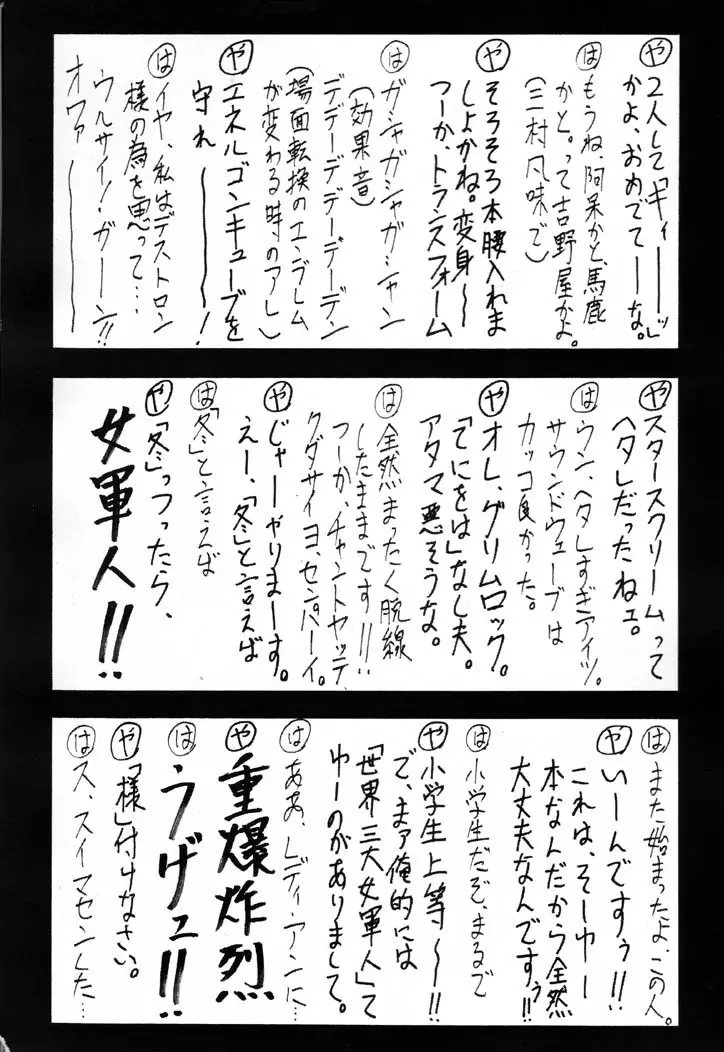 や 2人して「ギィーーーッ」
かよ、おめでてーーな。
は もうね、阿呆かと、馬鹿
かと。って吉野屋かよ。
(三村凡味で)
や そろそろ本腰入れま
しょかね。変身〜〜
つーか、トランスフォーム
は ガシャガシャガシャン
(効果音)
デデデーデデデーデーデン
(場面転換のエンブレム
が変わる時のアレ)
や エネルゴンキューブを
守れ――――!
は イヤ、私はデストロン
様の為を思って…
ウルサイ!・ガーン!!
オワァ――――
や スタースクリームって
ヘタレだったねェ。
は ウン、ヘタレすぎアイツ。
サウンドウェーブは
カッコ良かった。
や オレ、グリムロック。
「てにをは」なし夫。
アタマ悪そうな。
は 全然まったく脱線
したままです!!!
つーか、チャントヤッテ
クダサイヨ、センパーイ。
や じゃーやりまーす。
えー、「冬」と言えば
は 「冬」と言えば
や 「冬」っつったら、
女軍人!!
は また始まったよ、この人。
や いーんですぅ!!
これは、そーゆー
本なんだから全然
大丈夫なんですぅ!!
は 小学生だぞ、まるで
や 小学生上等〜!!
で、まァ俺的には
「世界三大女軍人」て
ゆーのがありまして。
は ああ、レディ・アンに…
や 重爆炸烈
は うげェ!!
や 「様」付けなさい。
は ス、スイマセンした…